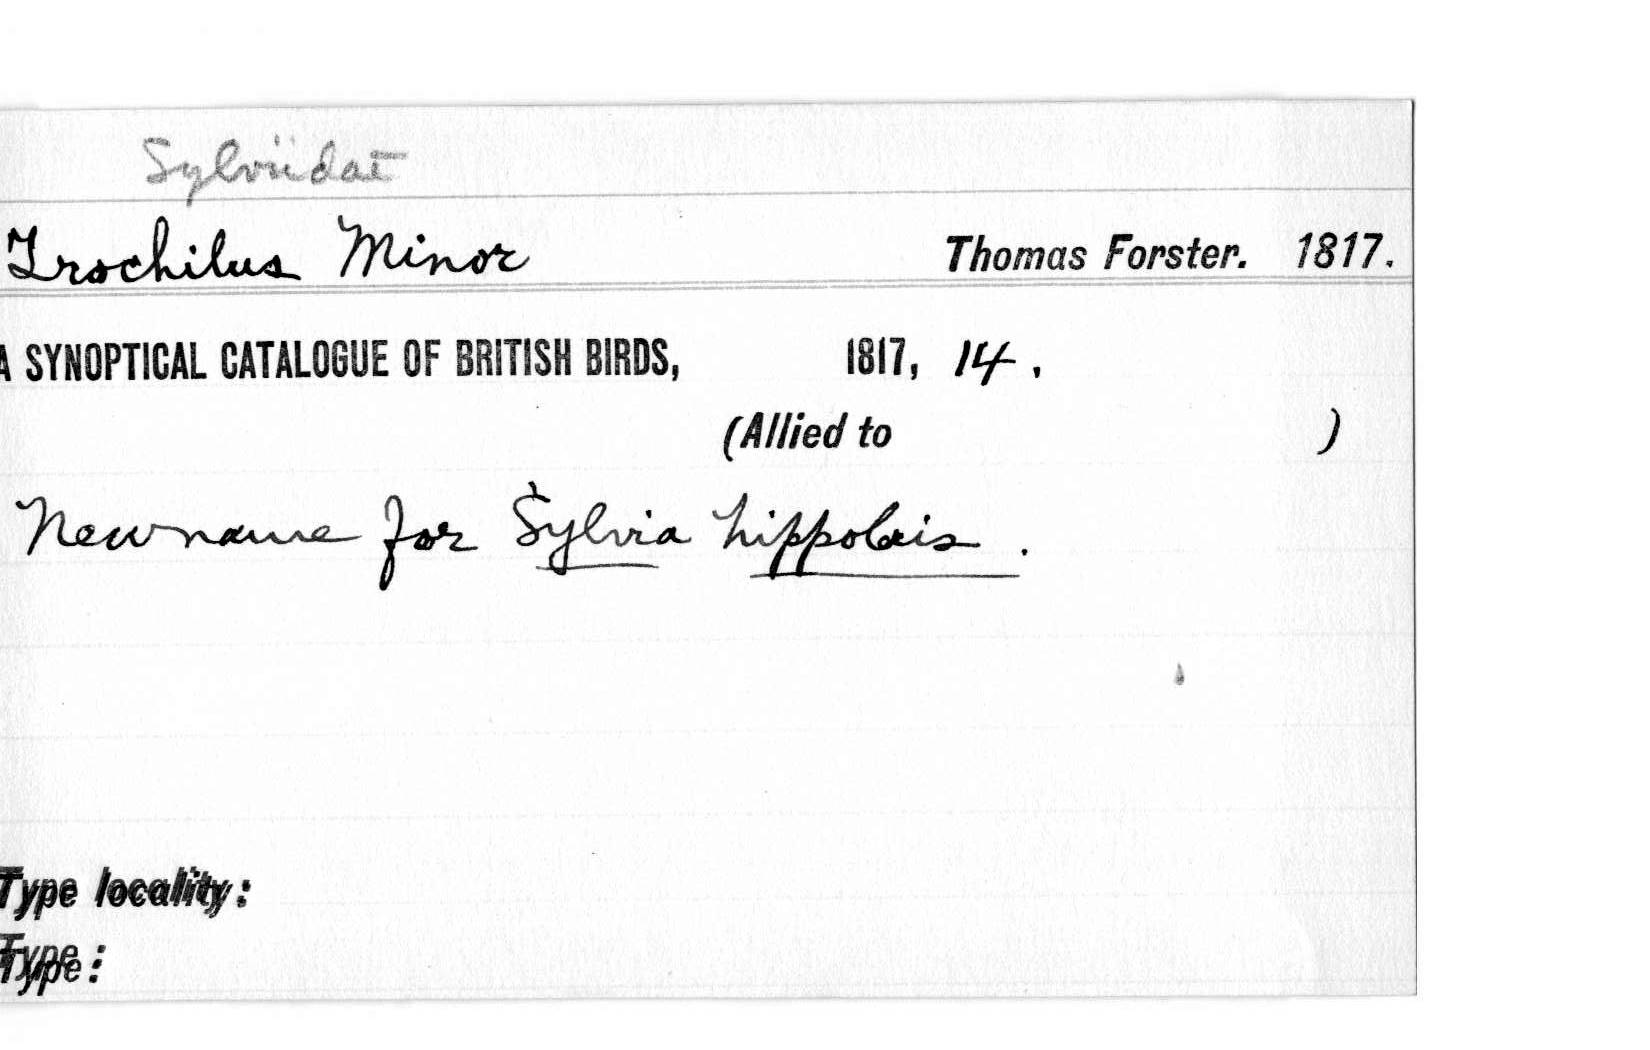 Sylviidae
Trochilus Minor Thomas Forster. 1817.
A SYNOPTICAL CATALOGUE OF BRITISH BIRDS, 1817, 14.
(Allied to )
New name for Sylvia hippolais.
Type locality:
Type: